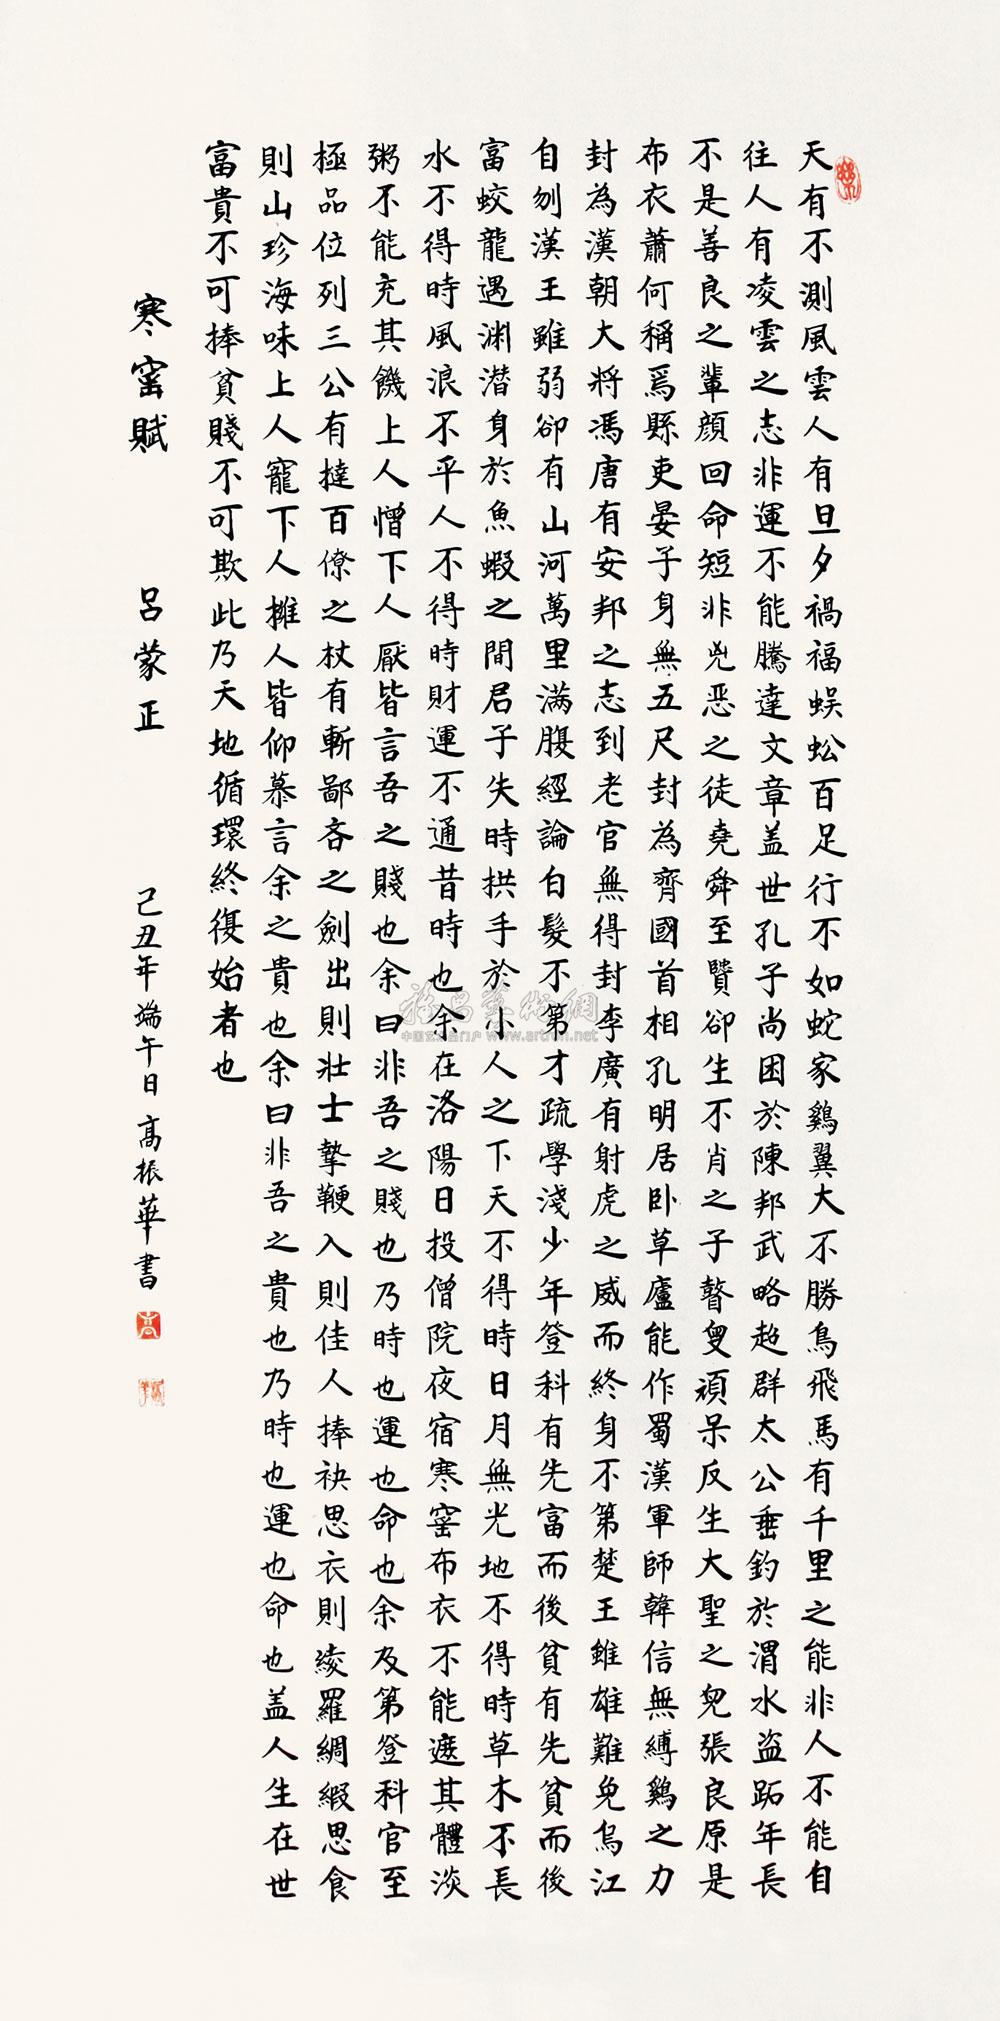 天有不測風雲人有旦夕禍福蜈蚣百足行不如蛇家鷄翼大不勝鳥飛馬有千里之能非人不能自
往人有凌雲之志非運不能騰達文章盖世孔子尚困於陳邦武略超群太公垂釣於渭水盗跖年長
不是善良之輩顔回命短非兇恶之徒堯舜至賢卻生不肖之子瞽叟頑呆反生大聖之兒張良原是
布衣蕭何稱爲縣吏晏子身無五尺封為齊國首相孔明居卧草廬能作蜀漢軍師韓信無縛鷄之力
封為漢朝大將馮唐有安邦之志到老官無得封李廣有射虎之威而終身不第楚王雖雄難免烏江
自刎漢王雖弱卻有山河萬里满腹經論白髮不第才疏學淺少年登科有先富而後貧有先貧而後
富蛟龍遇渊潜身於魚蝦之間君子失時拱手於小人之下天不得時日月無光地不得時草木不長
水不得時風浪不平人不得時財運不通昔時也余在洛陽日投僧院夜宿寒窑布衣不能遮其體淡
粥不能充其饑上人憎下人厭皆言吾之賤也余曰非吾之賤也乃時也運也命也余及第登科官至
極品位列三公有撻百僚之杖有斬鄙吝之劍出則壮士摯鞭入則佳人捧袂思衣則綾羅綢緞思食
則山珍海味上人寵下人擁人皆仰慕言余之貴也余曰非吾之貴也乃時也運也命也盖人生在世
富貴不可捧貧賤不可欺此乃天地循環終復始者也
寒窑賦 吕蒙正 己丑年端午日高振華書
中国艺术品门户 www.artron.net